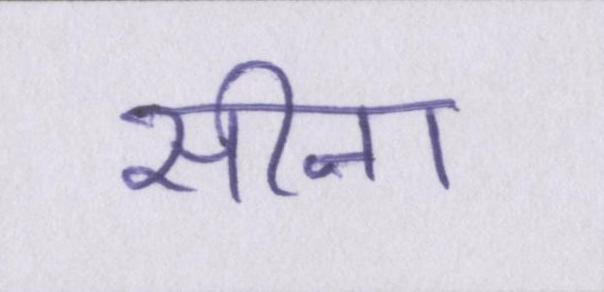 सीना